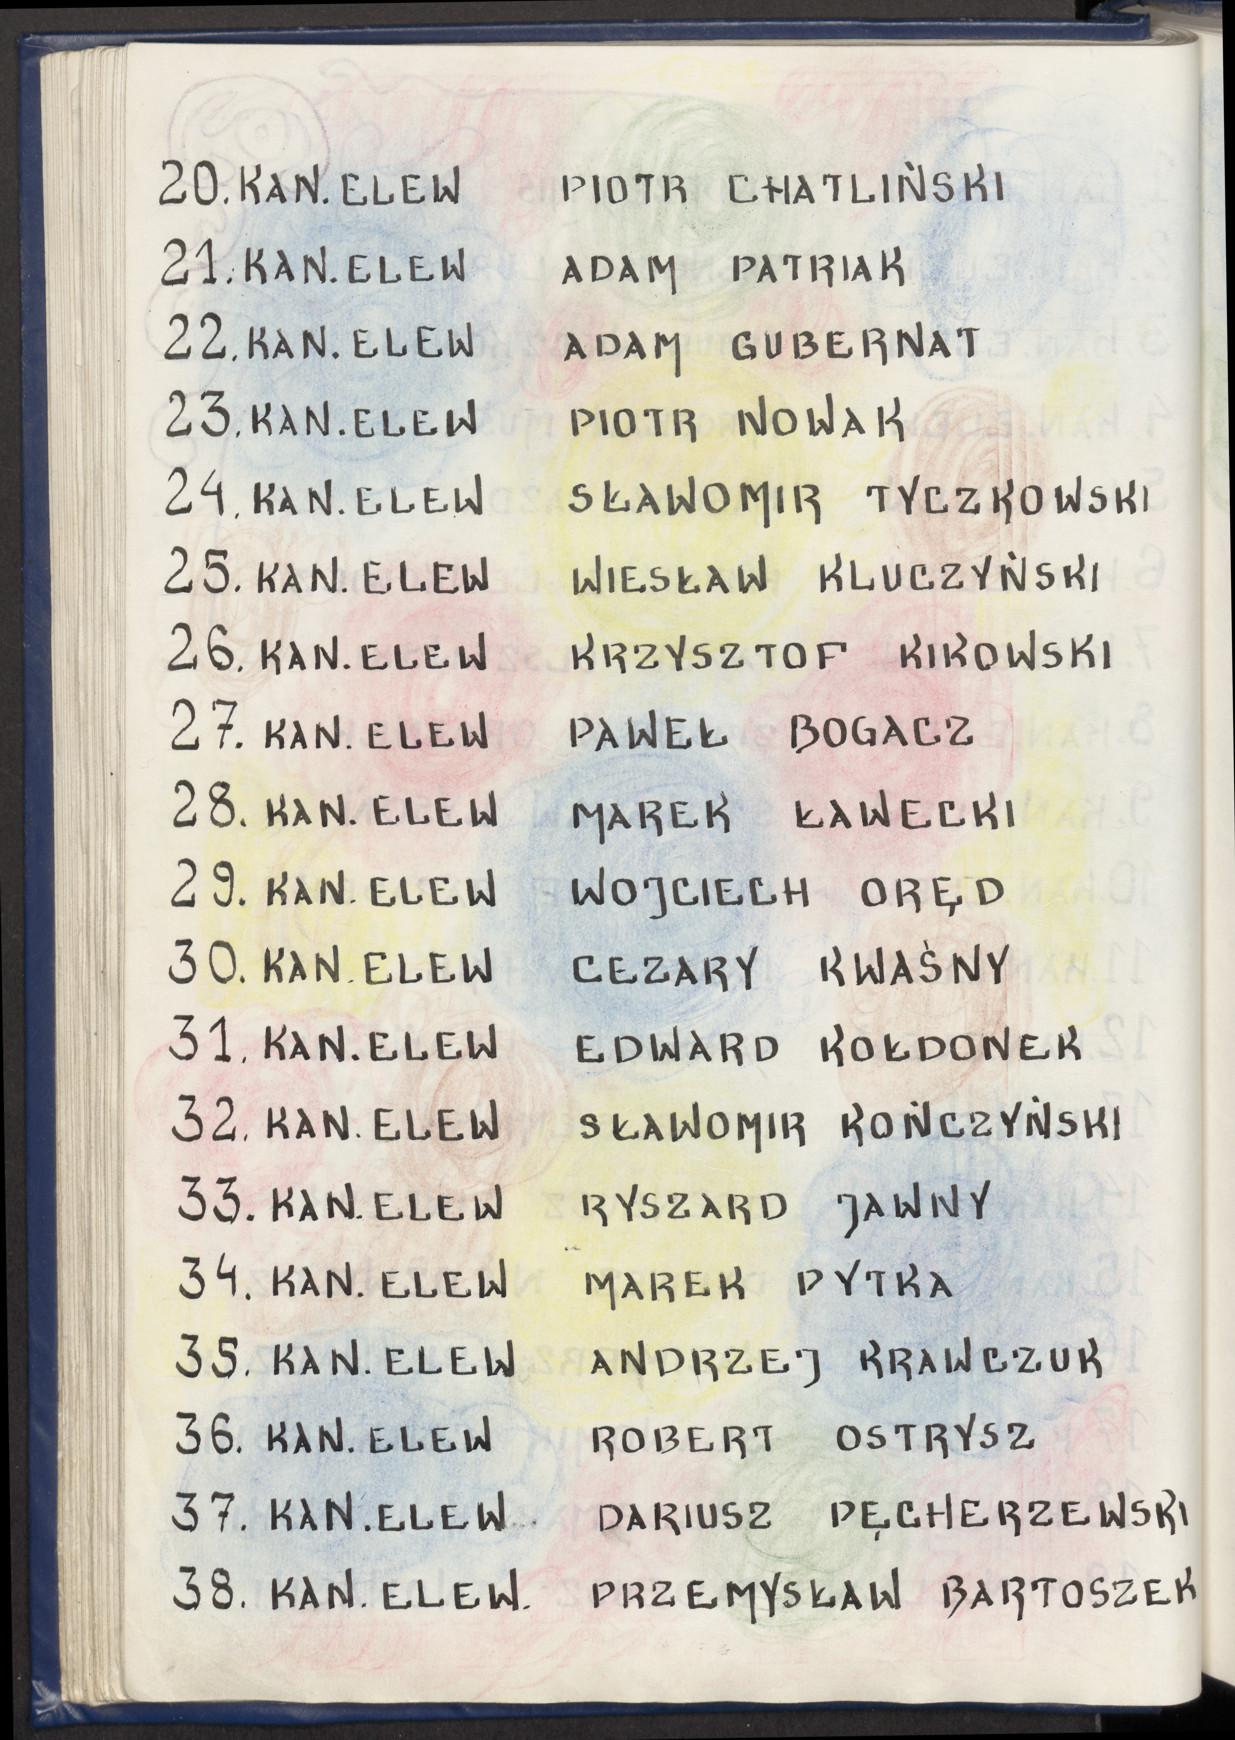 20. KAN. ELEW PIOTR CHATLIŃSKI
21. KAN. ELEW ADAM PATRIAK
22. KAN. ELEW ADAM GUBERNAT
23. KAN. ELEW PIOTR NOWAK
24. KAN. ELEW SŁAWOMIR TYCZKOWSKI
25. KAN. ELEW WIESŁAW KLUCZYŃSKI
26. KAN. ELEW KRZYSZTOF KIKOWSKI
27. KAN. ELEW PAWEŁ BOGACZ
28. KAN. ELEW MAREK ŁAWECKI
29. KAN. ELEW WOJCIECH ORĘD
30. KAN. ELEW CEZARY KWAŚNY
31. KAN. ELEW EDWARD KOŁDONEK
32. KAN. ELEW SŁAWOMIR KOŃCZYŃSKI
33. KAN. ELEW RYSZARD JAWNY
34. KAN. ELEW MAREK PYTKA
35. KAN. ELEW ANDRZEJ KRAWCZUK
36. KAN. ELEW ROBERT OSTRYSZ
37. KAN. ELEW DARIUSZ PĘCHERZEWSKI
38. KAN. ELEW. PRZEMYSŁAW BARTOSZEK